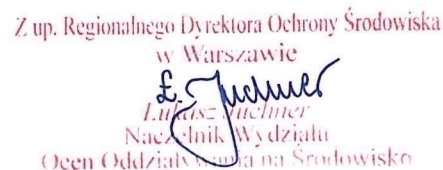 Z up. Regionalnego Dyrektora Ochrony Środowiska
w Warszawie
Ł. Juchner
Łukasz Juchner
Naczelnik Wydziału
Ocen Oddziaływania na Środowisko